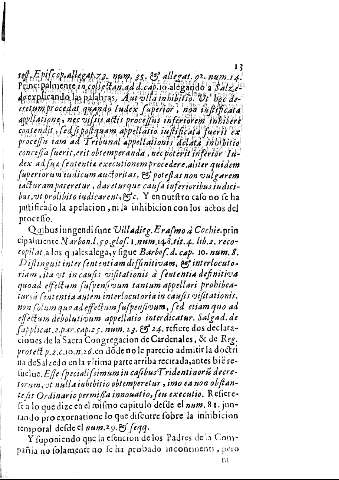 13
test. Episcop. allegat. 73. num. 35. & allegat. 92. num. 14.
Principalmente in collectan. ad d. cap. 10 alegando a Salze-
do explicando las palabras, Aut vlla inhibitio. Vt hoc de-
cretum procedat quando Iudex superior, non iustificata
appellatione, nec vissis actis processus inferiorem inhibere
contendit, sed si postquam appellatio iustificata fuerit ex
processu tam ad Tribunal appellationis delata inhibitio
concessa fuerit, erit obtemperanda, nec poterit inferior Iu-
dex ad suæ sententiæ executionem procedere, aliter quidem
superiorum iudicum auctoritas, & potestas non vulgarem
iacturam pateretur, daretur que causa inferioribus iudici-
bus, vt prohibito iudicarent, &c. Y en nuestro caso no se ha
justificado la apelacion, ni la inhibicion con los actos del
processo.
Quibus iungendi sunt Villadieg. Erasmo à Cochier. prin
cipalmente Narbon. l. 59. glos. 1. num. 148. tit. 4. lib. 2. reco-
copilat. a los quales alega, y sigue Barbos. d. cap. 10. num. 8.
Distinguit inter sententiam diffinitiuam, & interlocuto-
riam, ita vt in causis visitationis à sententia definitiua
quoad effectum suspensiuum tantum appellari prohibea-
tur à sententia autem interlocutoria in causis visitationis,
non solum quo ad effectum suspensiuum, sed etiam quo ad
effectum debolutiuum appellatio interdicatur. Salgad. de
supplicat. 2. par. cap. 25. num. 23. & 24. refiere dos declara-
ciones de la Sacra Congregacion de Cardenales, & de Reg.
protect. p. 2. c. 10. n. 26. en dõde no le parecio admitir la doctri
na de Salzedo en la vltima parte arriba recitada, antes bi&#7869; re-
suelue. Esse specialissimum in casibus Tridentini decre-
torum, vt nulla inhibitio obtemperetur, imo ea non obstan-
te sit Ordinario permissa innouatio, seu executio. Refiere-
se a lo que dize en el mismo capitulo desde el num. 81. jun-
tando pro exornatione lo que discurre sobre la inhibicion
temporal desde el num. 29. & seqq.
Y suponiendo que la esencion de los Padres de la Com-
pañia no solamente no se ha probado incontinenti, pero